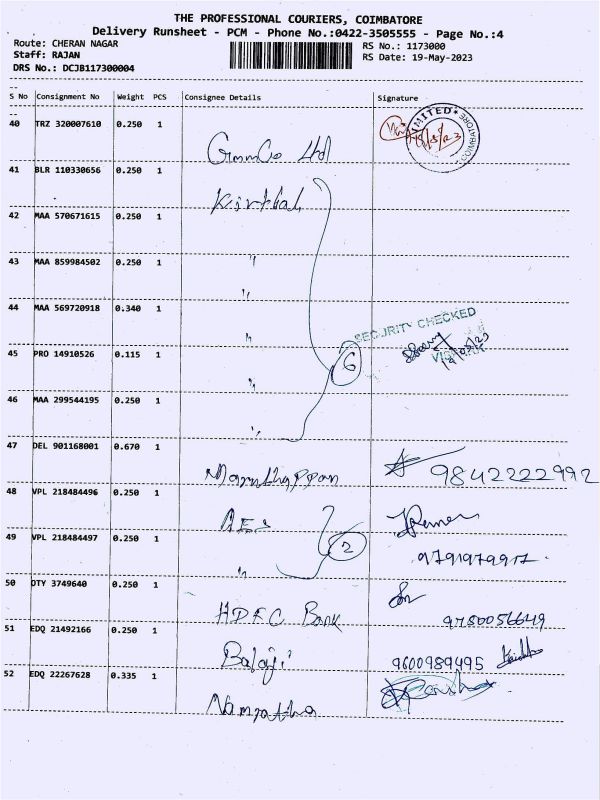 THE PROFESSIONAL COURIERS, COIMBATORE
Delivery Runsheet - PCM - Phone No.:0422-3505555 - Page No.:4
Route: CHERAN NAGAR RS No.: 1173000
Staff: RAJAN RS Date: 19-May-2023
DRS No.: DCJB117300004
S No Consignment No Weight PCS Consignee Details Signature
40 TRZ 320007610 0.250 1
GmmCo Ltd
41 BLR 110330656 0.250 1
Kirthal
42 MAA 570671615 0.250 1
43 MAA 859984502 0.250 1
"
"
44 MAA 569720918 0.340 1
"
SECURITY CHECKED
45 PRO 14910526 0.115 1
6
"
46 MAA 299544195 0.250 1
"
47 DEL 901168001 0.670 1
9842222992
48 VPL 218484496 0.250 1
AES
49 VPL 218484497 0.250 1
2
"
9791979917
50 OTY 3749640 0.250 1
HDFC Bank
9780056649
51 EDQ 21492166 0.250 1
Balaji
9600989495
52 EDQ 22267628 0.335 1
Namratha